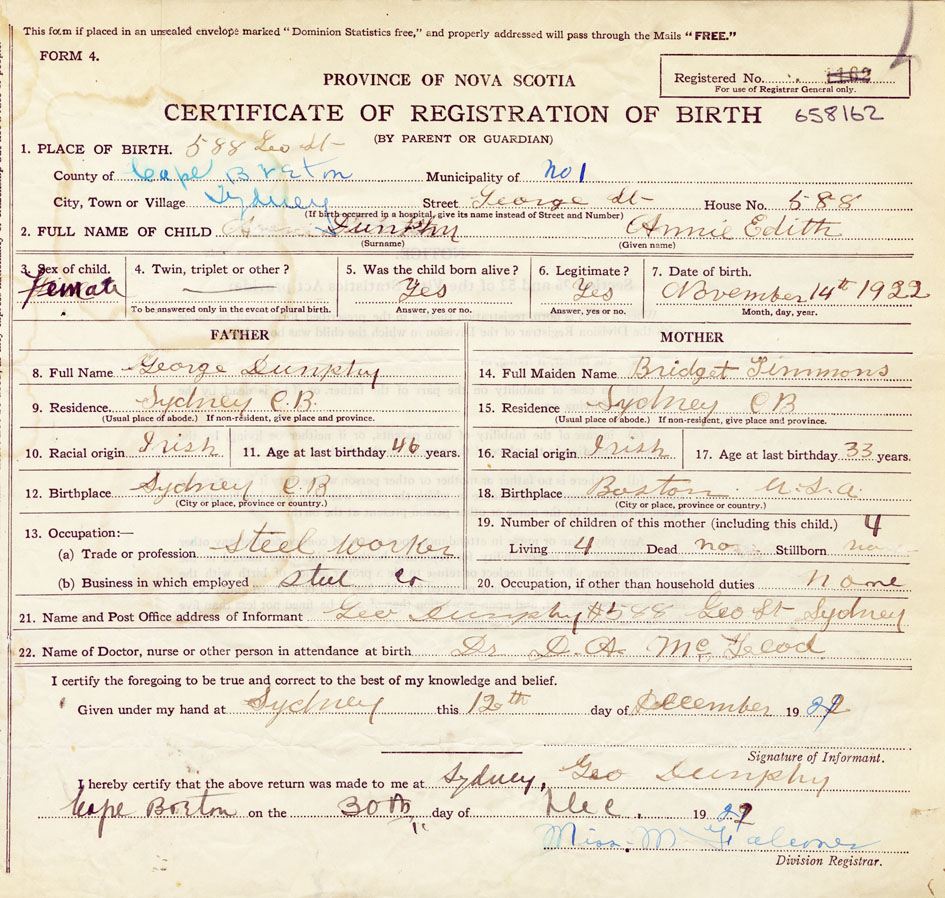 This form if placed in an unsealed envelope marked "Dominion Statistics free," and properly addressed will pass through the Mails "FREE."
FORM 4.
PROVINCE OF NOVA SCOTIA
Registered No. 1162
For use of Registrar General only.
CERTIFICATE OF REGISTRATION OF BIRTH 658162
(BY PARENT OR GUARDIAN)
1. PLACE OF BIRTH. 588 Geo St
County of Cape Breton Municipality of No 1
City, Town or Village Sydney Street George St House No. 588
(If birth occurred in a hospital, give its name instead of Street and Number)
2. FULL NAME OF CHILD Dunphy Annie Edith
(Surname) (Given name)
3. Sex of child. 4. Twin, triplet or other? 5. Was the child born alive? 6. Legitimate? 7. Date of birth.
Female — Yes Yes November 14th 1922
To be answered only in the event of plural birth. Answer, yes or no. Answer, yes or no. Month, day, year.
FATHER MOTHER
8. Full Name George Dunphy 14. Full Maiden Name Bridget Timmons
9. Residence. Sydney C.B. 15. Residence Sydney CB
(Usual place of abode.) If non-resident, give place and province. (Usual place of abode.) If non-resident, give place and province.
10. Racial origin Irish 11. Age at last birthday 46 years. 16. Racial origin Irish 17. Age at last birthday 33 years.
12. Birthplace Sydney C.B 18. Birthplace Boston U.S.A.
(City or place, province or country.) (City or place, province or country.)
13. Occupation:— 19. Number of children of this mother (including this child.) 4
(a) Trade or profession Steel Worker Living 4 Dead no Stillborn no
(b) Business in which employed Steel Co 20. Occupation, if other than household duties None
21. Name and Post Office address of Informant Geo Dunphy #588 Geo St Sydney
22. Name of Doctor, nurse or other person in attendance at birth Dr D.A. McLeod
I certify the foregoing to be true and correct to the best of my knowledge and belief.
Given under my hand at Sydney this 12th day of December 19 22
Signature of Informant.
I hereby certify that the above return was made to me at Sydney, Geo Dunphy
Cape Breton on the 30th day of Dec. 19 22
Miss. M Falconer
Division Registrar.